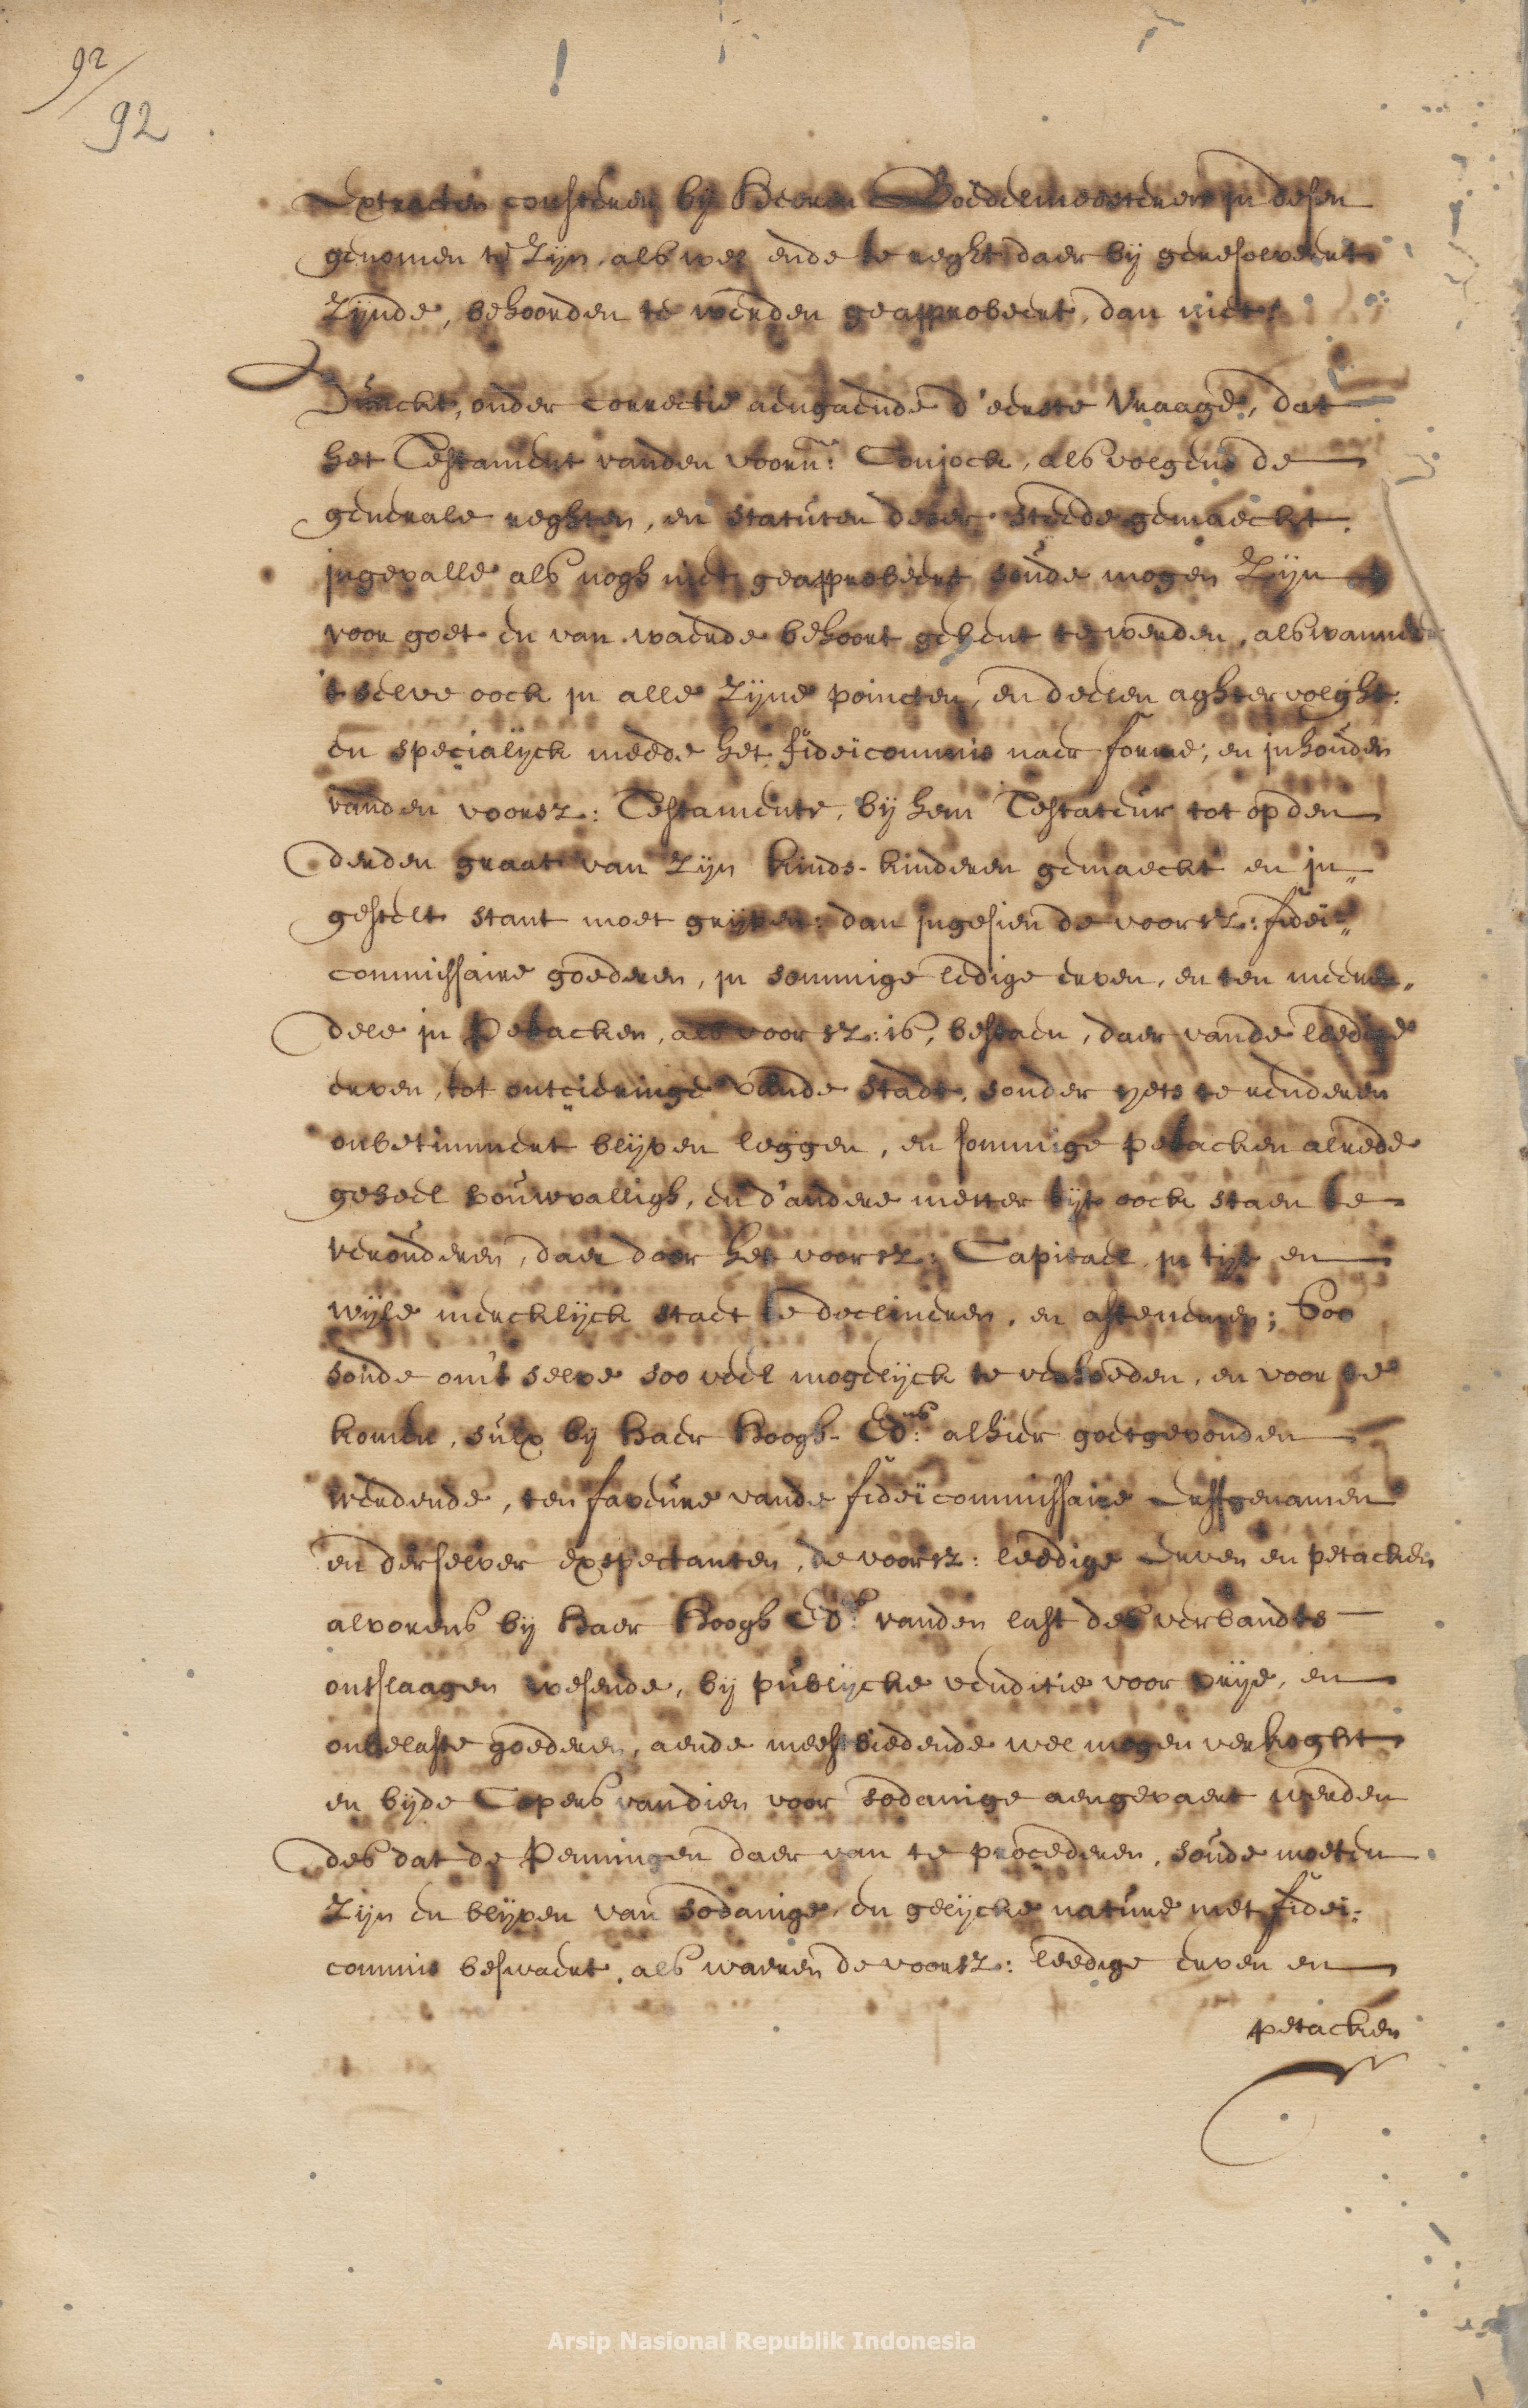 92/
92
Extracten consteren bij Heeren Boedelmeesteren in desen
genomen te zijn, als wel ende te reght daer bij geresolveert
zijnde, behoorden te werden geapprobeert, dan niet.
Dunckt, onder correctie aengaende d'eerste Vraage, dat
het Testament vanden voorn: Conjock, als volgens de
generale reghten, en statuten deser steede gemaeckt
ingevalle als nogh niet geapprobeert soude mogen zijn
voor goet en van waerde behoort gekent te werden, als wanneer
't selve oock in alle zijne poincten, en deelen aghtervolght:
en specialijck meede het fideicommis naer forme, en inhouden
vanden voorsz: Testamente, bij hem Testateur tot op den
derden graat van zijn kinds-kinderen gemaeckt en in„
gestelt stant moet grijpen: dan ingesien de voorsz: fidei„
commissaire goederen, in sommige ledige erven, en ten meeren„
dele in Petacken, als voorsz: is, bestaen, daer vande leedige
erven, tot ontcieringe vande stadt, sonder yets te renderen
onbetimmert blijven leggen, en sommige petacken alrede
geheel bouwvalligh, en d'andere metter tijt oock staen te
verouderen, daer door het voorsz: Capitael in tijt en
wijle mercklijck staet te declineren, en aftenemen; Soo
soude om 't selve soo veel mogelijck te verhoeden, en voor te
komen, sulx bij haer Hoogh-Ed:ns alhier goetgevonden
werdende, ten faveure vande fideicommissaire Erffgenamen
en derselver expectanten, de voorsz: leedige Erven en petacken
alvorens bij haer Hoogh Ed:s vanden last des verbandts
ontslaagen wesende, bij publijcke venditie voor vrije, en
onbelaste goederen, aende meestbiedende wel mogen verkoght
en bijde Copers van dien voor sodanige aengevaert werden
des dat de Penningen daer van te procederen, soude moeten
zijn en blijven van sodanige, en gelijcke nature met fidei:
commis beswaert, als waeren de voorsz: leedige erven en
petacken
Arsip Nasional Republik Indonesia